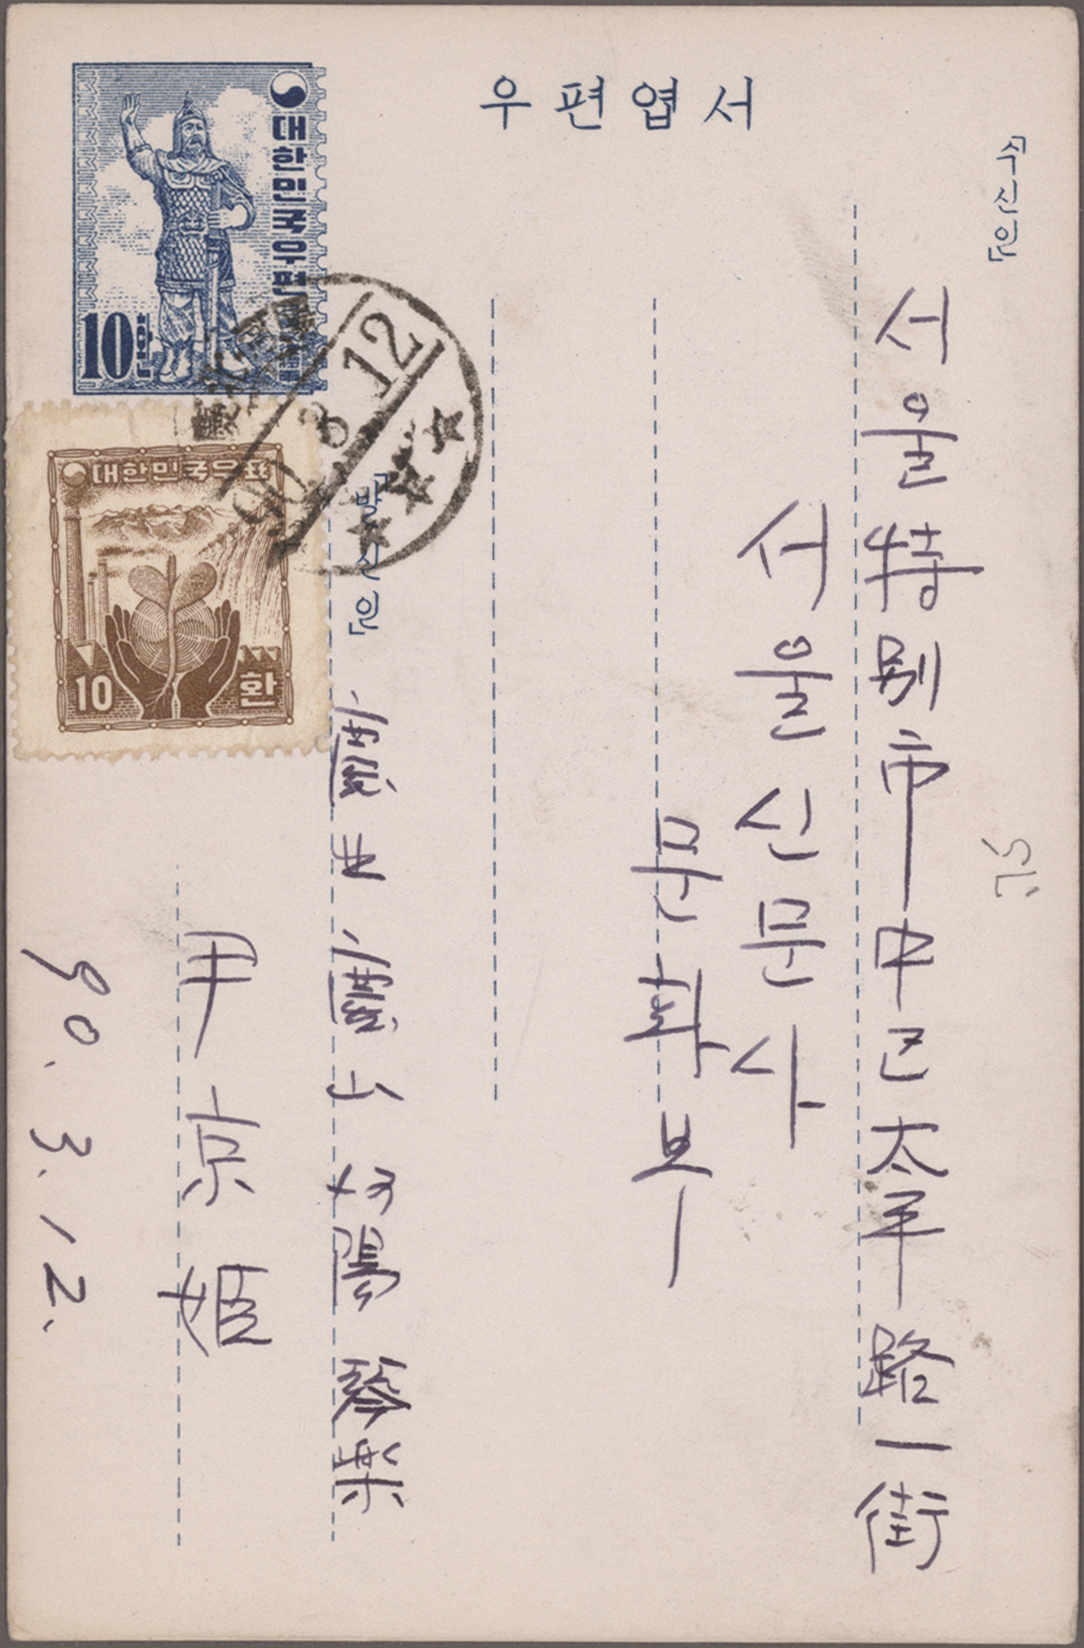 우편엽서
대한민국우편
10환
대한민국우표
10 환
「수신인」
서울特別市 中区 太平路 一街
서울신문사
문화부
「발신인」
慶北慶山 河陽 琴樂
尹京姬
90. 3. 12.